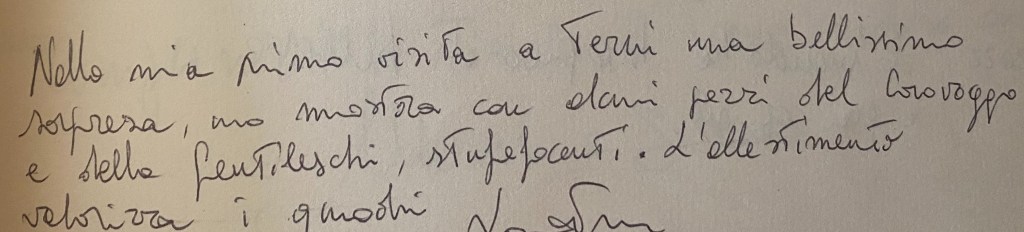 Nella mia prima visita a Terni una bellissima
sorpresa, una mostra con alcuni pezzi del Caravaggio
e della Gentileschi, stupefacenti. L'allestimento
valorizza i quadri